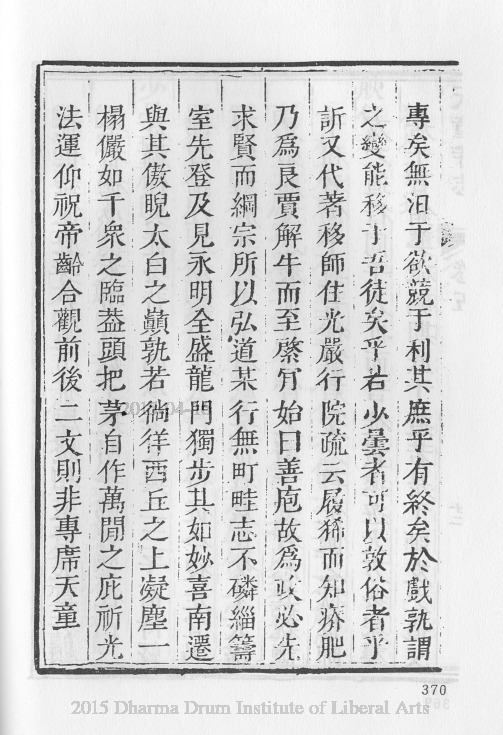 專矣無汩于欲競于利其庶乎有終矣於戲孰謂
之變能移于吾徒矣乎若少曇者可以敦俗者乎
訢又代著移師住光嚴行院疏云履狶而知瘠肥
乃為良賈解牛而至綮肯始曰善庖故為政必先
求賢而綱宗所以弘道某行無町畦志不磷緇籌
室先登及見永明全盛龍門獨步其如妙喜南遷
與其傲睨太白之巔孰若徜徉西丘之上凝塵一
榻儼如千衆之臨葢頭把茅自作萬閒之庇祈光
法運仰祝帝齡合觀前後二文則非專席天童
370
2015 Dharma Drum Institute of Liberal Arts